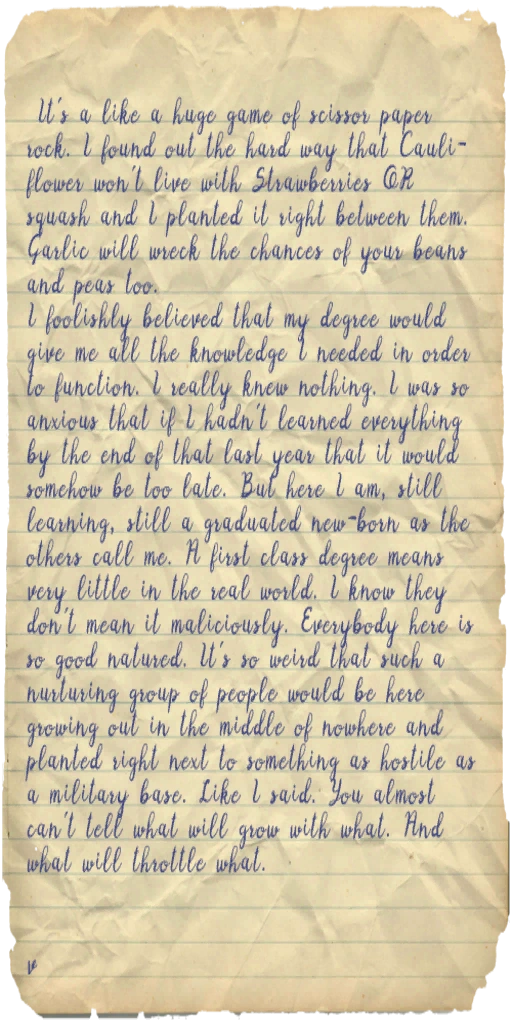 It's a like a huge game of scissor paper
rock. I found out the hard way that Cauli-
flower won't live with Strawberries OR
squash and I planted it right between them.
Garlic will wreck the chances of your beans
and peas too.
I foolishly believed that my degree would
give me all the knowledge I needed in order
to function. I really knew nothing. I was so
anxious that if I hadn't learned everything
by the end of that last year that it would
somehow be too late. But here I am, still
learning, still a graduated new-born as the
others call me. A first class degree means
very little in the real world. I know they
don't mean it maliciously. Everybody here is
so good natured. It's so weird that such a
nurturing group of people would be here
growing out in the middle of nowhere and
planted right next to something as hostile as
a military base. Like I said. You almost
can't tell what will grow with what. And
what will throttle what.